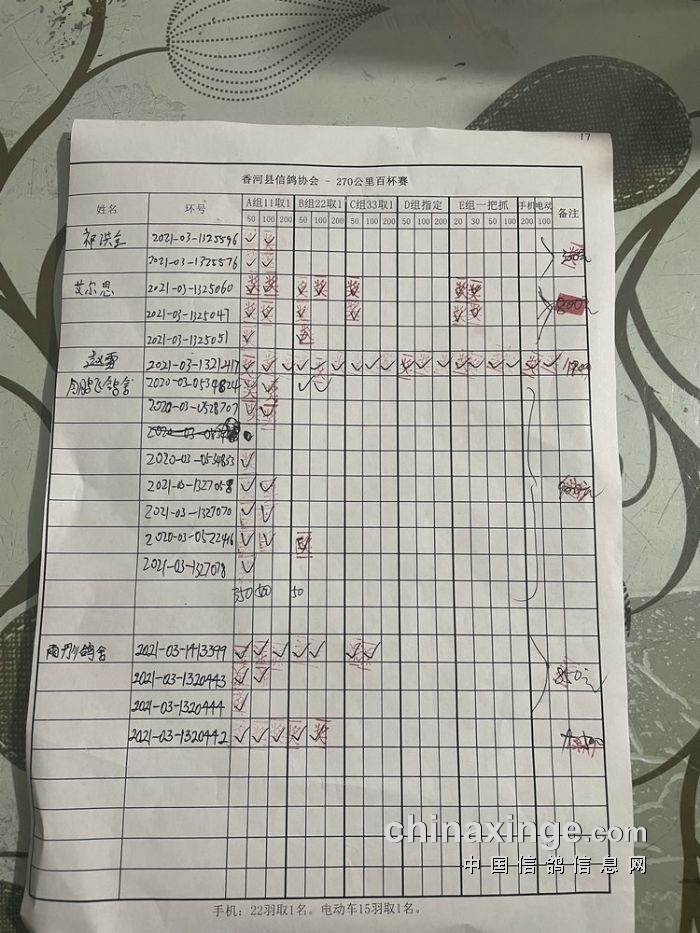 17
香河县信鸽协会 - 270公里百杯赛
姓名 环号 A组11取1 B组22取1 C组33取1 D组指定 E组一把抓 手机 电动 备注
50 100 200 50 100 200 50 100 200 50 100 200 20 30 50 100 200 100
祁洪全 2021-03-1325596 ✓ ✓
2021-03-1325576 ✓ ✓
艾尔思 2021-03-1325060
2021-03-1325047
2021-03-1325051
赵雷 2021-03-1321417
鸽舍 2020-03-0534824
2020-03-0528707
2020-03-0534833
2021-03-1327058
2021-03-1327070
2020-03-0522416
2021-03-1327078
350 500 50
鸽舍 2021-03-1413399
2021-03-1320443 850元
2021-03-1320444
2021-03-1320442
chinaxinge.com
中国信鸽信息网
手机：22羽取1名。电动车15羽取1名。